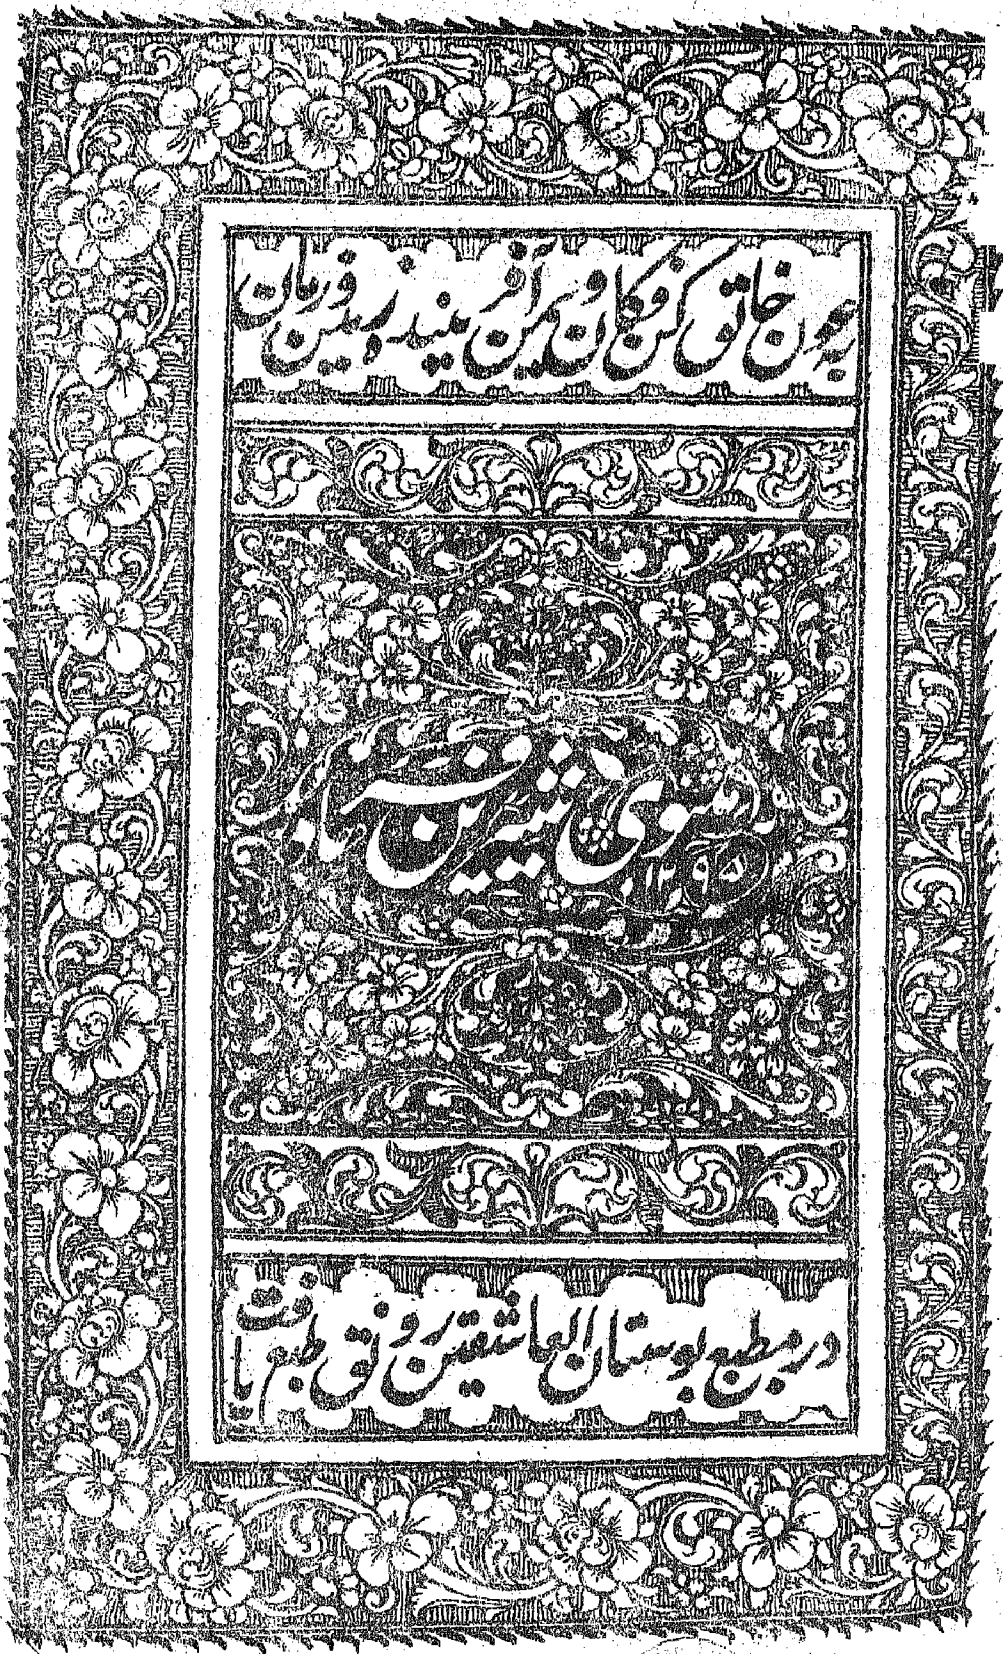 بعون خالق کن فکان و بیمن آفرینندہ زمین و زمان
مثنوی شیرین فرہاد
۱۲۹۵
در مطبع بوستان العاشقین رونق طبع یافت